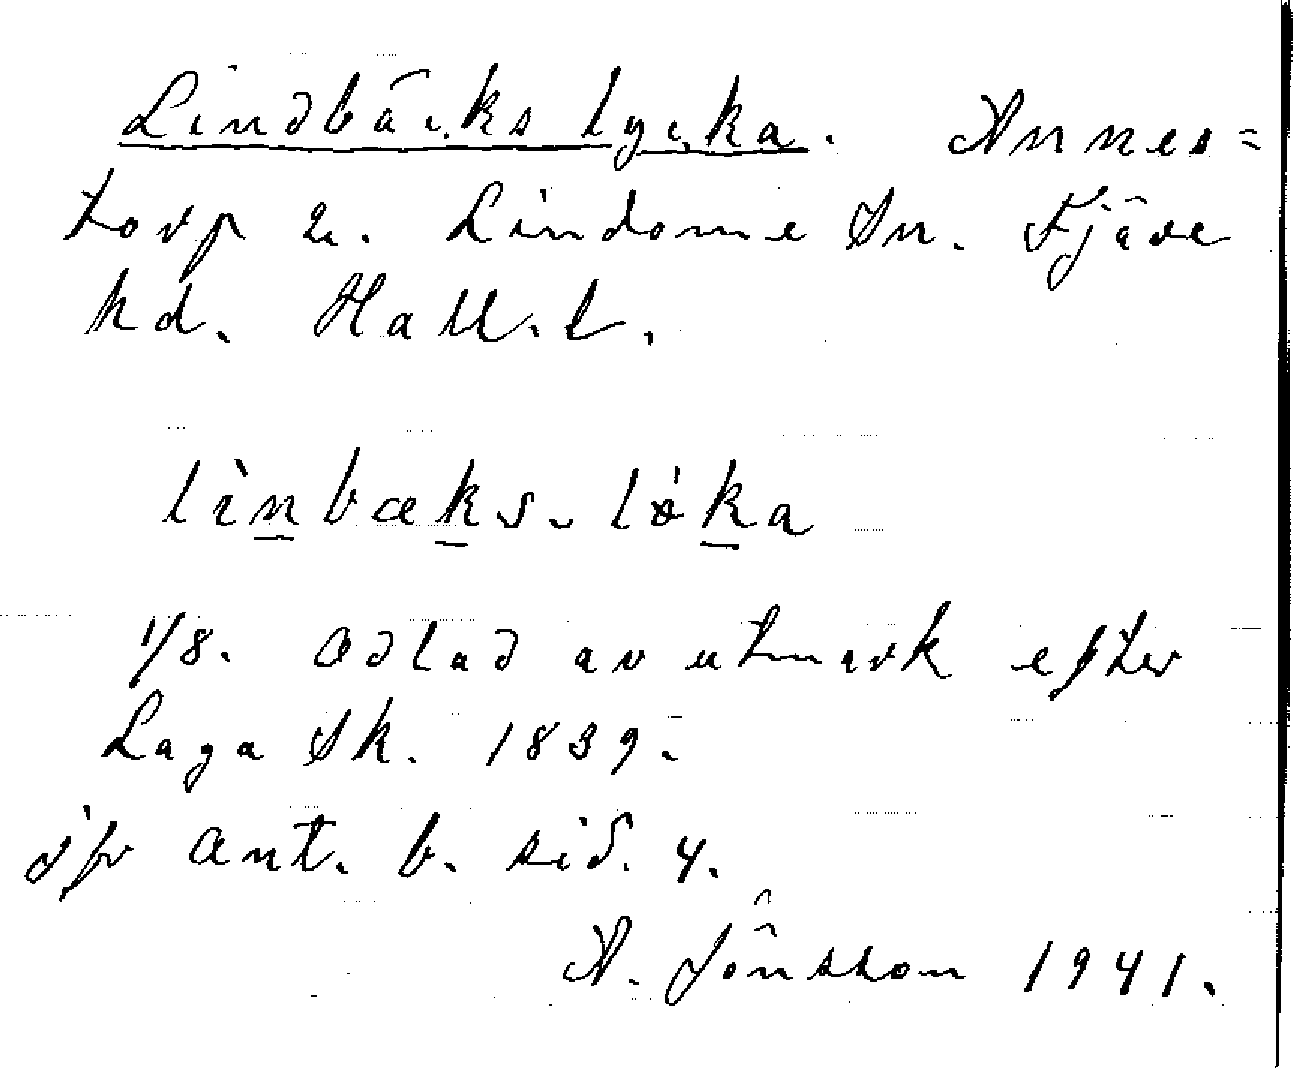 Lindbäcks lycka. Annes=
torp 2. Lindome Sn. Fjäre
hd. Hall. l.
lìnbæks-lø̀ka
1/8. Odlad av utmark efter
Laga Sk. 1839.
jfr Ant. b. sid. 4.
A. Jönsson 1941.